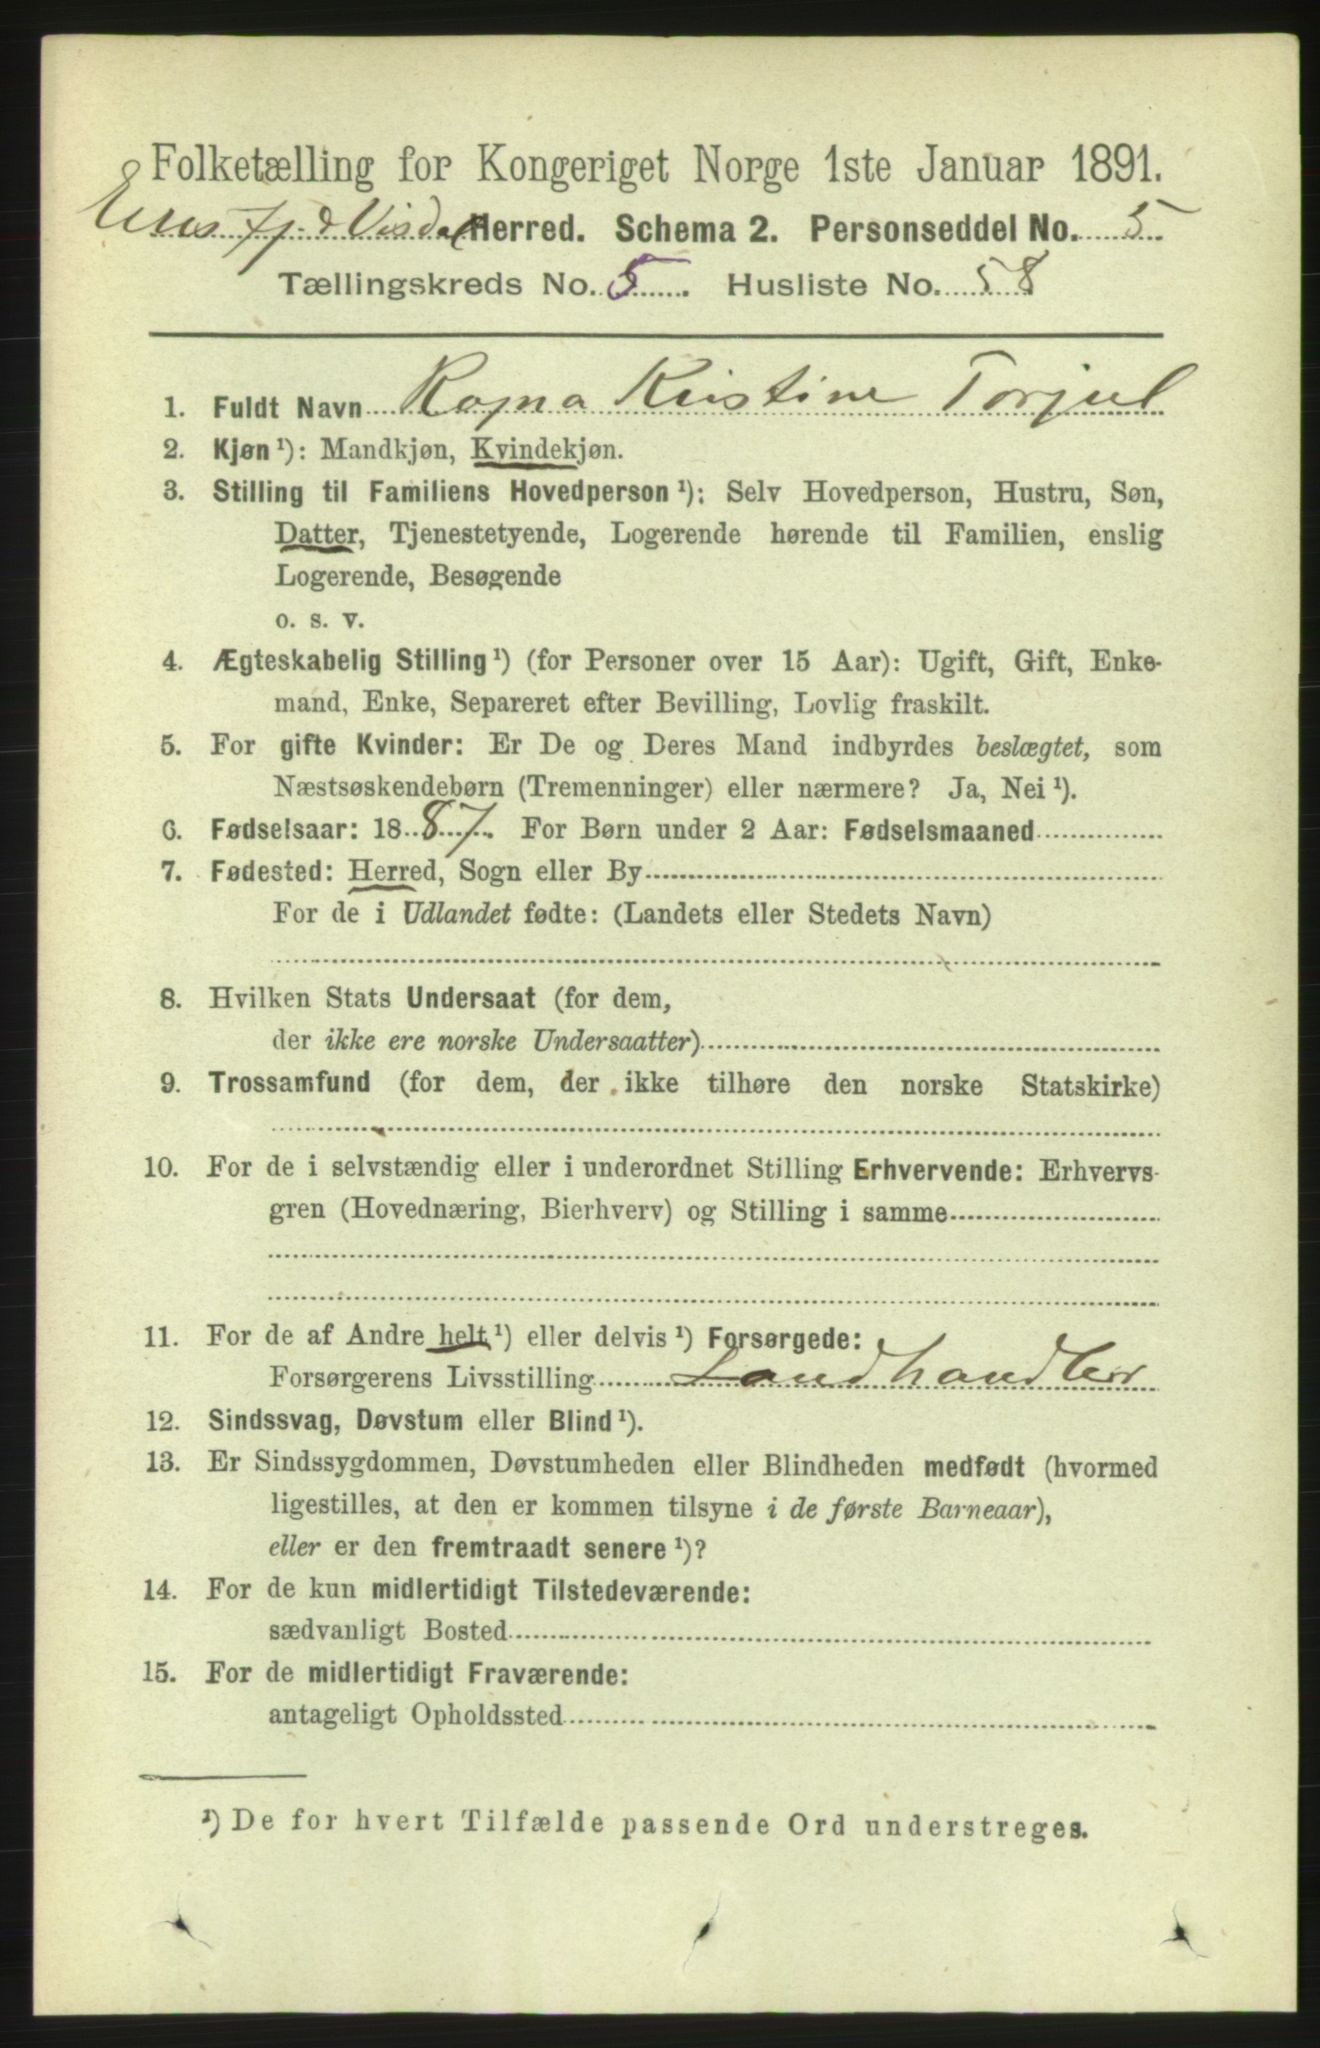 Folketælling for Kongeriget Norge 1ste Januar 1891.
Eresfj. & Visdal Herred. Schema 2. Personseddel No. 5
Tællingskreds No. 5. Husliste No. 58
1. Fuldt Navn Ragna Kristine Torjul
2. Kjøn ¹): Mandkjøn, Kvindekjøn.
3. Stilling til Familiens Hovedperson ¹): Selv Hovedperson, Hustru, Søn,
Datter, Tjenestetyende, Logerende hørende til Familien, enslig
Logerende, Besøgende
o. s. v.
4. Ægteskabelig Stilling ¹) (for Personer over 15 Aar): Ugift, Gift, Enke-
mand, Enke, Separeret efter Bevilling, Lovlig fraskilt.
5. For gifte Kvinder: Er De og Deres Mand indbyrdes beslægtet, som
Næstsøskendebørn (Tremenninger) eller nærmere? Ja, Nei ¹).
6. Fødselsaar: 1887. For Børn under 2 Aar: Fødselsmaaned
7. Fødested: Herred, Sogn eller By
For de i Udlandet fødte: (Landets eller Stedets Navn)
8. Hvilken Stats Undersaat (for dem,
der ikke ere norske Undersaatter)
9. Trossamfund (for dem, der ikke tilhøre den norske Statskirke)
10. For de i selvstændig eller i underordnet Stilling Erhvervende: Erhvervs-
gren (Hovednæring, Bierhverv) og Stilling i samme
11. For de af Andre helt ¹) eller delvis ¹) Forsørgede:
Forsørgerens Livsstilling Landhandler
12. Sindssvag, Døvstum eller Blind ¹).
13. Er Sindssygdommen, Døvstumheden eller Blindheden medfødt (hvormed
ligestilles, at den er kommen tilsyne i de første Barneaar),
eller er den fremtraadt senere ¹)?
14. For de kun midlertidigt Tilstedeværende:
sædvanligt Bosted
15. For de midlertidigt Fraværende:
antageligt Opholdssted
¹) De for hvert Tilfælde passende Ord understreges.